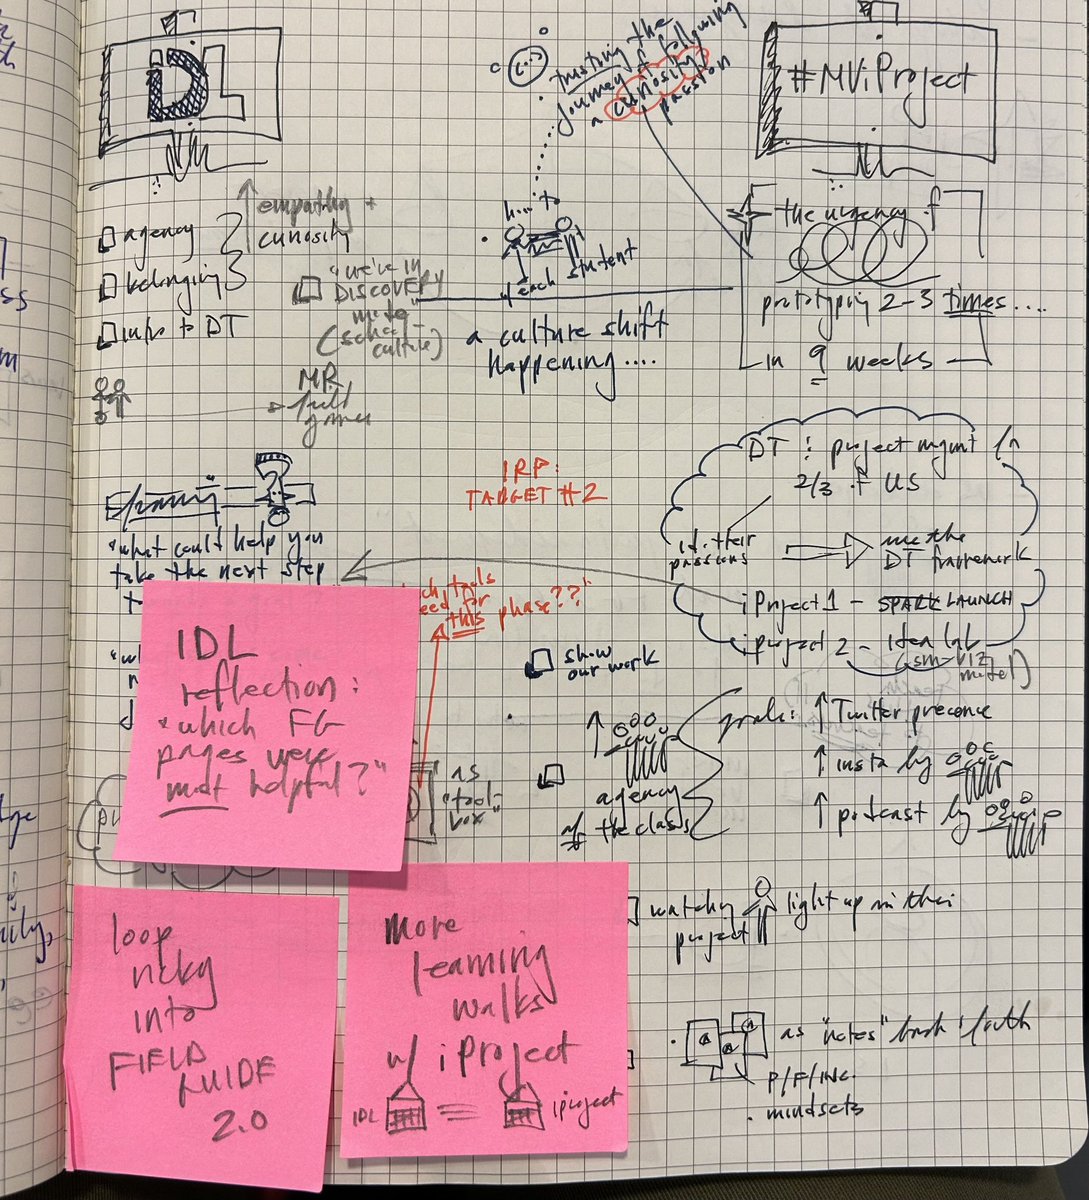 IDL
agency
belonging
intro to DT
empathy +
curiosity
"we're in
DISCOVERY
mode"
(school
culture)
MR
field
games
trusting the
journey of following
a curiosity/
passion
how to
w/ each student
a culture shift
happening....
#MViProject
the urgency of
prototyping 2-3 times....
in 9 weeks
IRP:
TARGET #2
DT : project mgmt
2/3 of US
id. their
passions
use the
DT framework
iProject 1 - SPARK LAUNCH
iproject 2 - Idea lab
"what could help you
take the next step
tools
need for
this phase??"
show
our work
agency
of the class
goals: ↑ Twitter presence
↑ insta by
↑ podcast by
as
"tool-
box"
IDL
reflection:
"which FG
pages were
most helpful?"
loop
nicky
into
FIELD
GUIDE
2.0
more
learning
walks
w/ iProject
IDL
iproject
watching light up in their
project
as "notes" back & forth
P/F/INC.
mindsets